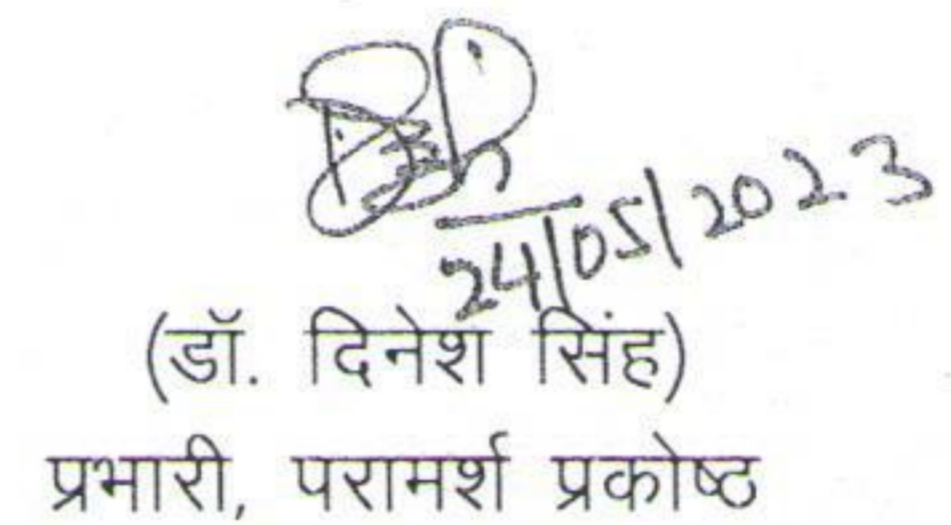 24/05/2023
(डॉ. दिनेश सिंह)
प्रभारी, परामर्श प्रकोष्ठ